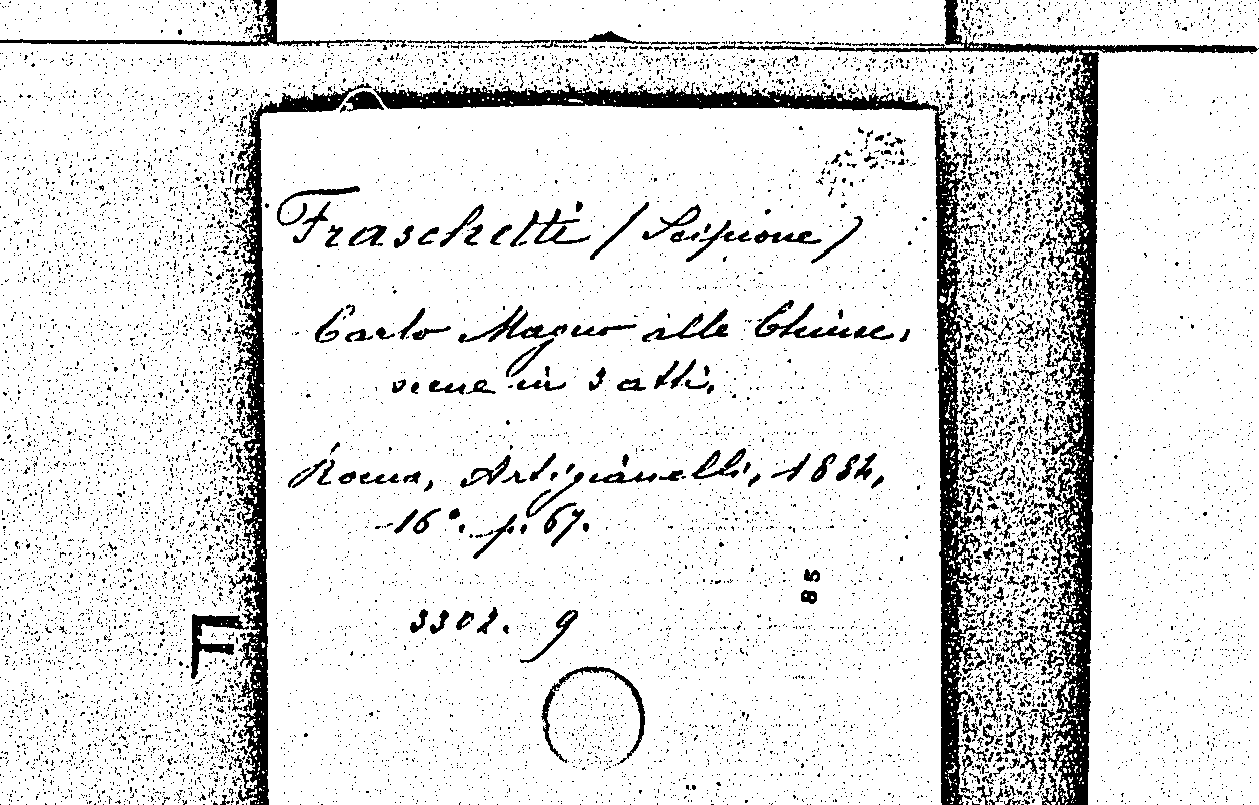 Fraschetti (Scipione)
Carlo Magno alle Chiuse,
scene in 3 atti.
Roma, Artigianelli, 1882,
16°. p. 67.
85
3302. 9
F